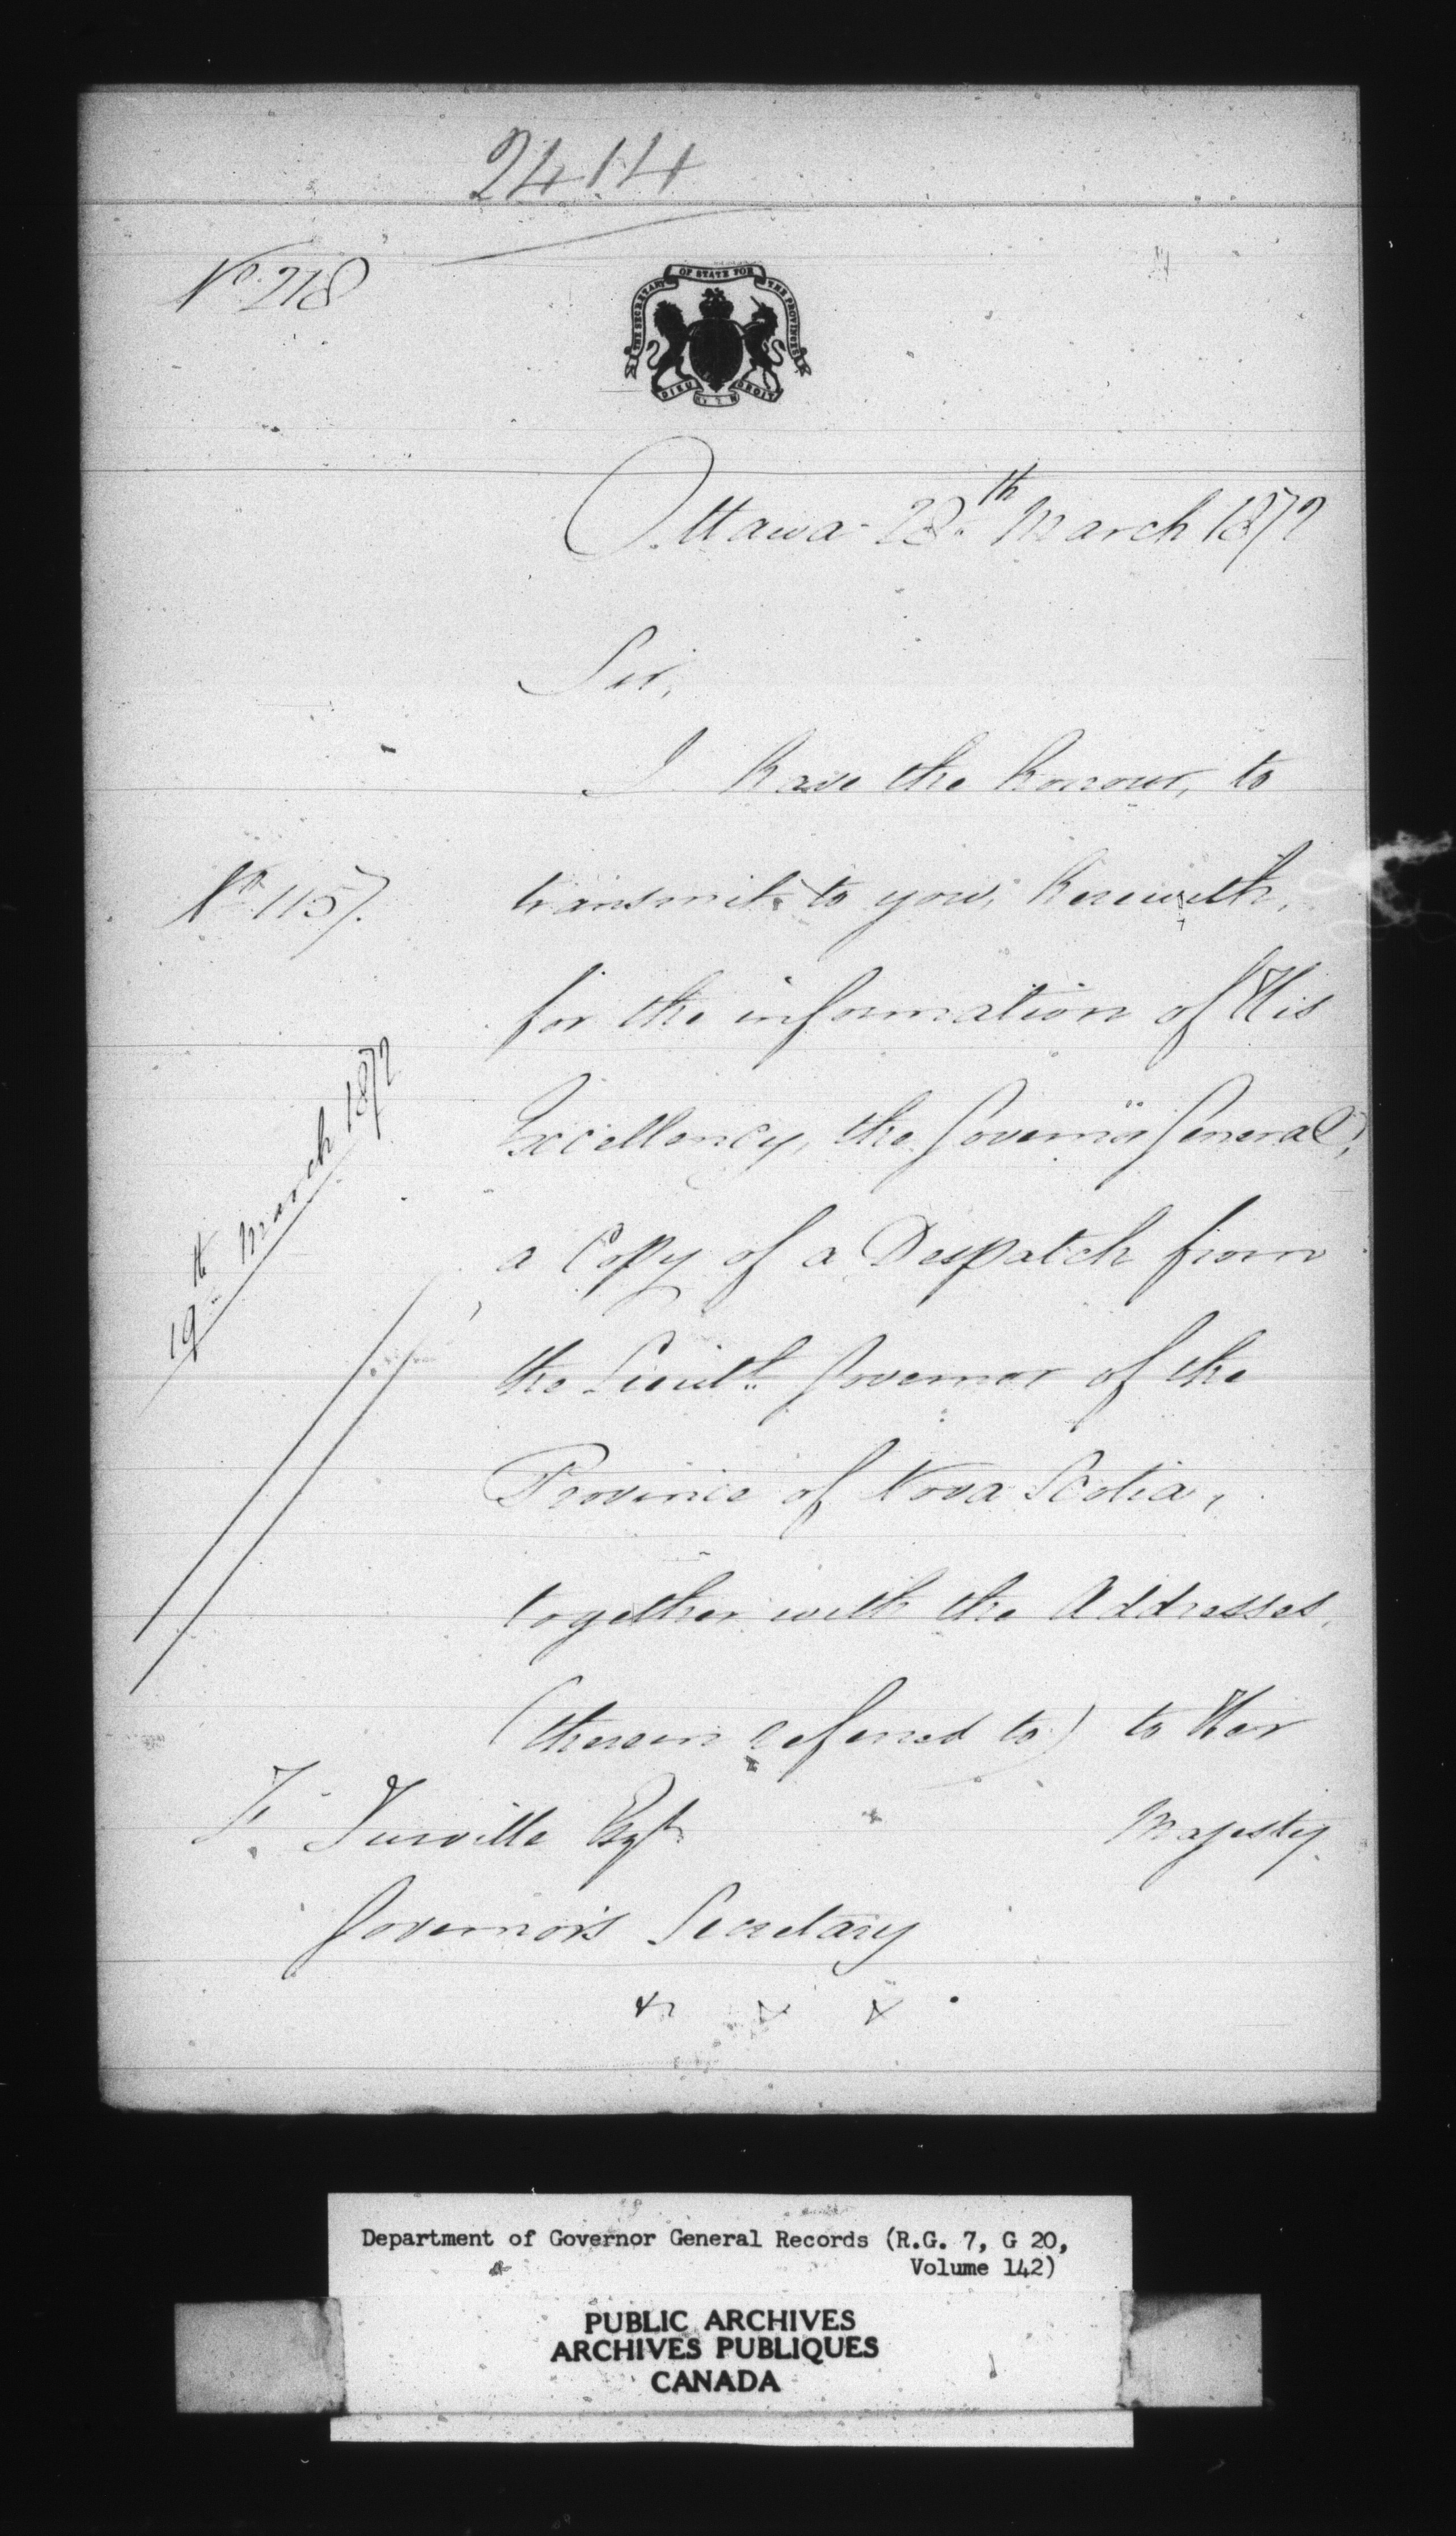 2414
No 218
THE SECRETARY OF STATE FOR THE PROVINCES
DIEU ET MON DROIT
Ottawa 28th March 1872
Sir,
I have the honour, to
No 1157.
transmit to you, herewith,
for the information of His
Excellency, the Governor General,
19th March 1872
a Copy of a Despatch from
the Lieut. Governor of the
Province of Nova Scotia,
together with the Addresses,
(therein referred to) to Her
Majesty
F. Turville Esqr
Governor's Secretary
Department of Governor General Records (R.G. 7, G 20,
Volume 142)
PUBLIC ARCHIVES
ARCHIVES PUBLIQUES
CANADA